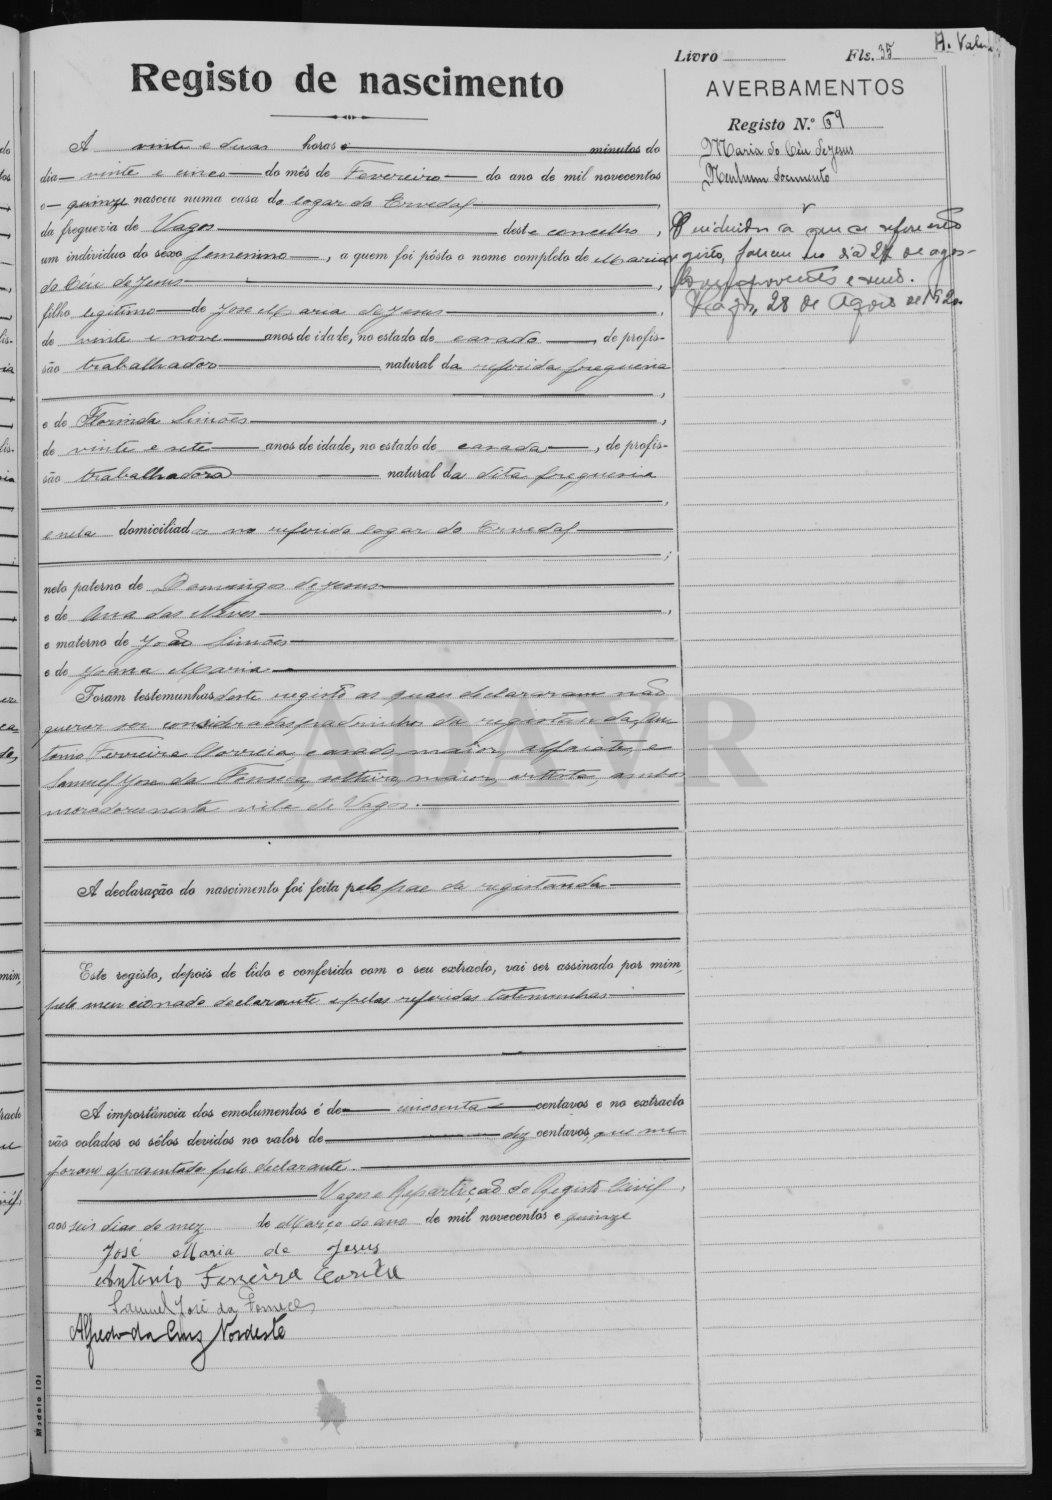 Livro Fls. 35
A. Val
Registo de nascimento
AVERBAMENTOS
Registo N.º 69
Maria do Céu de Jesus
Nenhum documento
A vinte e duas horas e minutos do
dia vinte e cinco do mês de Fevereiro do ano de mil novecentos
e quinze nasceu numa casa do logar do Ervedal
da freguezia de Vagos deste concelho,
um individuo do sexo femenino, a quem foi pôsto o nome completo de Maria
do Céu de Jesus,
filho legitimo de José Maria de Jesus,
de vinte e nove anos de idade, no estado de casado, de profis-
são trabalhador natural da referida freguesia
,
e de Florinda Simões,
de vinte e sete anos de idade, no estado de casada, de profis-
são trabalhadora natural da dita freguesia
,
e nela domiciliados no referido logar do Ervedal
;
neto paterno de Domingos de Jesus
e de Ana das Neves,
e materno de João Simões
e de Joana Maria
Foram testemunhas deste registo as quaes declararam não
querer ser consideradas padrinhos da registanda, An
tonio Ferreira Correia, casado, maior, alfaiate, e
Samuel José da Fonseca, solteiro, maior, artista, ambos
moradores nesta vila de Vagos.
A declaração do nascimento foi feita pelo pae da registanda
Este registo, depois de lido e conferido com o seu extracto, vai ser assinado por mim,
pelo mencionado declarante e pelas referidas testemunhas
A importância dos emolumentos é de cincoenta centavos e no extracto
vão colados os sêlos devidos no valor de dez centavos, que me
foram apresentados pelo declarante.
Vagos e Repartição do Registo Civil,
aos seis dias do mez de Março do ano de mil novecentos e quinze
José Maria de Jesus
Antonio Ferreira Correia
Samuel José da Fonseca
Alfredo da Cruz Nordeste
a que se refere este
gisto, faleceu no dia 27 de agos-
Vagos, 28 de Agosto de 1920
ADAVR
Modelo 101